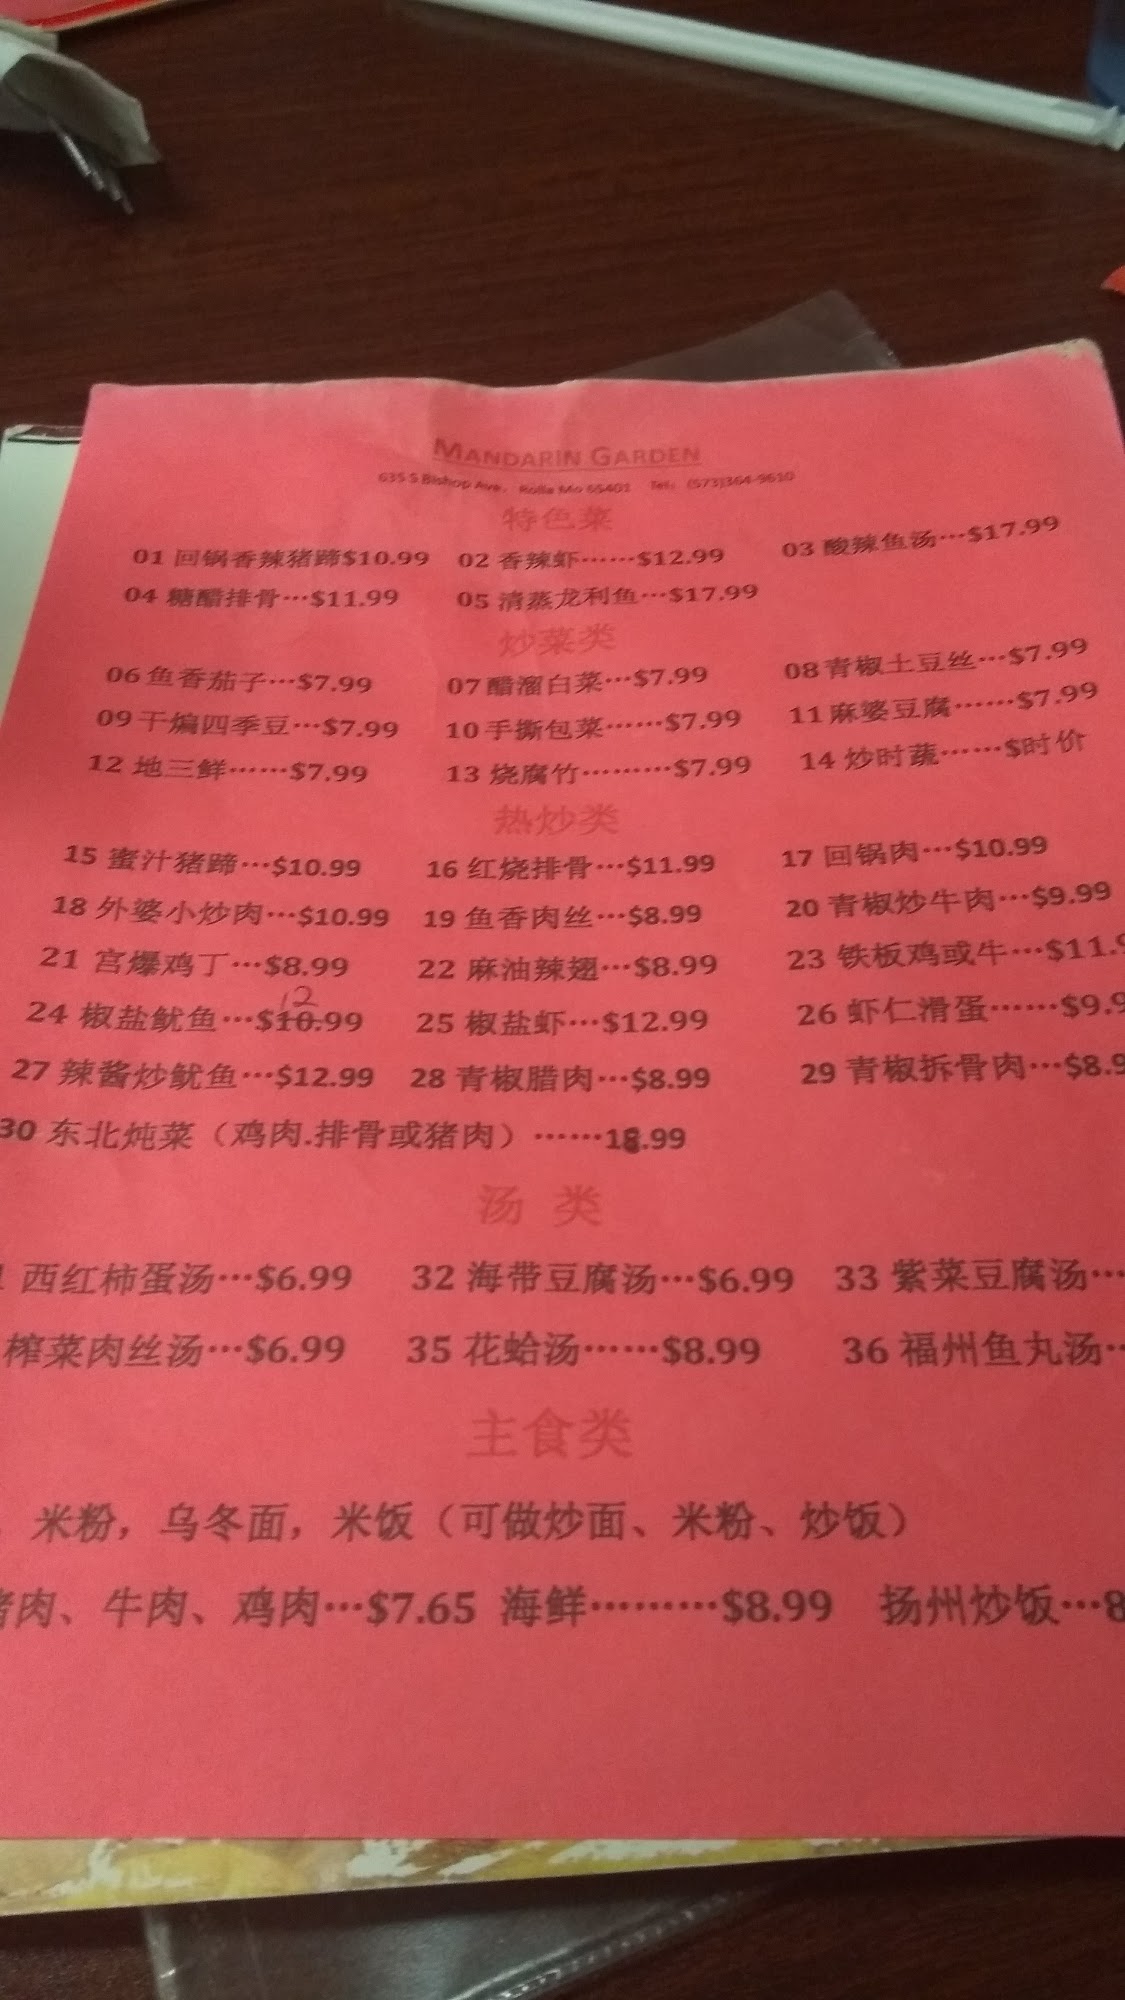 MANDARIN GARDEN
635 S Bishop Ave, Rolla Mo 65401 Tel: (573)364-9610
特色菜
01 回锅香辣猪蹄$10.99 02 香辣虾……$12.99 03 酸辣鱼汤…$17.99
04 糖醋排骨…$11.99 05 清蒸龙利鱼…$17.99
炒菜类
06 鱼香茄子…$7.99 07 醋溜白菜…$7.99 08 青椒土豆丝…$7.99
09 干煸四季豆…$7.99 10 手撕包菜……$7.99 11 麻婆豆腐……$7.99
12 地三鲜……$7.99 13 烧腐竹………$7.99 14 炒时蔬……$时价
热炒类
15 蜜汁猪蹄…$10.99 16 红烧排骨…$11.99 17 回锅肉…$10.99
18 外婆小炒肉…$10.99 19 鱼香肉丝…$8.99 20 青椒炒牛肉…$9.99
21 宫爆鸡丁…$8.99 22 麻油辣翅…$8.99 23 铁板鸡或牛…$11.9
12
24 椒盐鱿鱼…$10.99 25 椒盐虾…$12.99 26 虾仁滑蛋……$9.9
27 辣酱炒鱿鱼…$12.99 28 青椒腊肉…$8.99 29 青椒拆骨肉…$8.9
30 东北炖菜（鸡肉.排骨或猪肉）……18.99
汤 类
西红柿蛋汤…$6.99 32 海带豆腐汤…$6.99 33 紫菜豆腐汤…
榨菜肉丝汤…$6.99 35 花蛤汤……$8.99 36 福州鱼丸汤…
主食类
米粉，乌冬面，米饭（可做炒面、米粉、炒饭）
肉、牛肉、鸡肉…$7.65 海鲜………$8.99 扬州炒饭…8